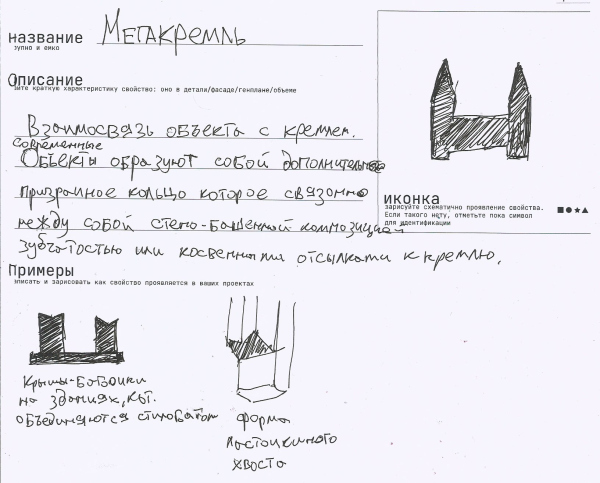 название МЕГАКРЕМЛЬ
зупно и емко
Описание
йте краткую характеристику свойство: оно в детали/фасаде/генплане/объеме
Взаимосвязь объекта с кремлем.
современные
Объекты образуют собой дополнительное
призрачное кольцо которое связанно
между собой стено-башенной композицией
зубчатостью или косвенными отсылками к кремлю.
иконка
зарисуйте схематично проявление свойства.
Если такого нету, отметьте пока символ
для идентификации
Примеры
писать и зарисовать как свойство проявляется в ваших проектах
Крыши-
на зданиях, кот.
объединяются
форма
ласточкиного
хвоста